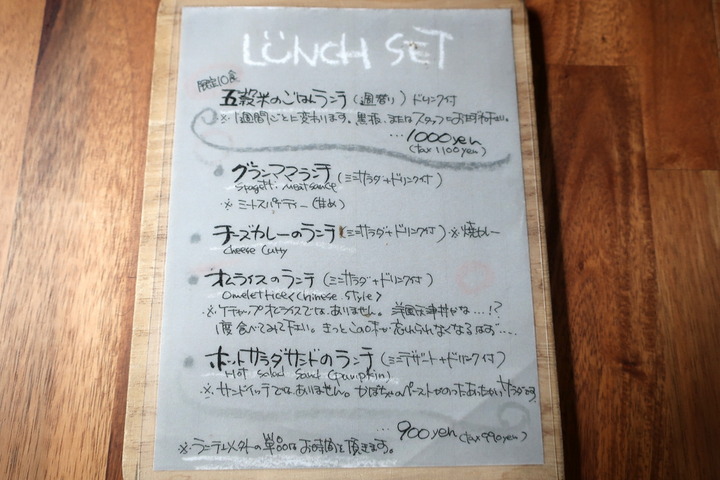 LUNCH SET
限定10食
五穀米のごはんランチ(週替り)ドリンク付
※1週間ごとに変わります。黒板、またはスタッフにお尋ね下さい。
…1000yen
(tax1100yen)
グランママランチ(ミニサラダ+ドリンク付)
Spagetti meat sauce
※ミートスパゲティー(甘め)
チーズカレーのランチ(ミニサラダ+ドリンク付)※焼カレー
Cheese Curry
オムライスのランチ(ミニサラダ+ドリンク付)
Omelettrice<Chinese style>
※ケチャップオムライスではありません。洋風天津丼かな…!?
1度食べてみて下さい。きっとこの味が忘れられなくなるはず…。
ホットサラダサンドのランチ(ミニデザート+ドリンク付)
Hot salad sand (pumpkin)
※サンドイッチではありません。かぼちゃのペーストがのったあったかいサラダです
…900yen(tax990yen)
※ランチ以外の単品はお時間を頂きます。